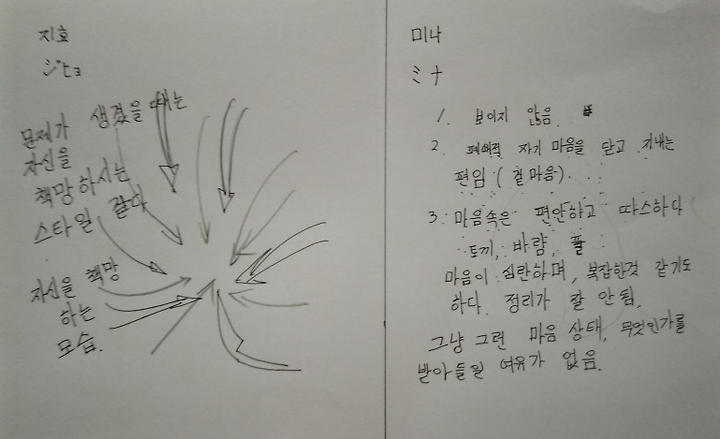 지호
ジヒョ
문제가 생겼을 때는
자신을
책망하시는
스타일 같다
자신을 책망
하는
모습.
미나
ミナ
1. 보이지 않음.
2. 폐쇄적 자기 마음을 닫고 지내는
편임 (겉마음).
3. 마음속은 편안하고 따스하다
토끼, 바람, 풀
마음이 심란하며, 복잡한것 같기도
하다. 정리가 잘 안됨.
그냥 그런 마음 상태, 무엇인가를
받아들일 여유가 없음.